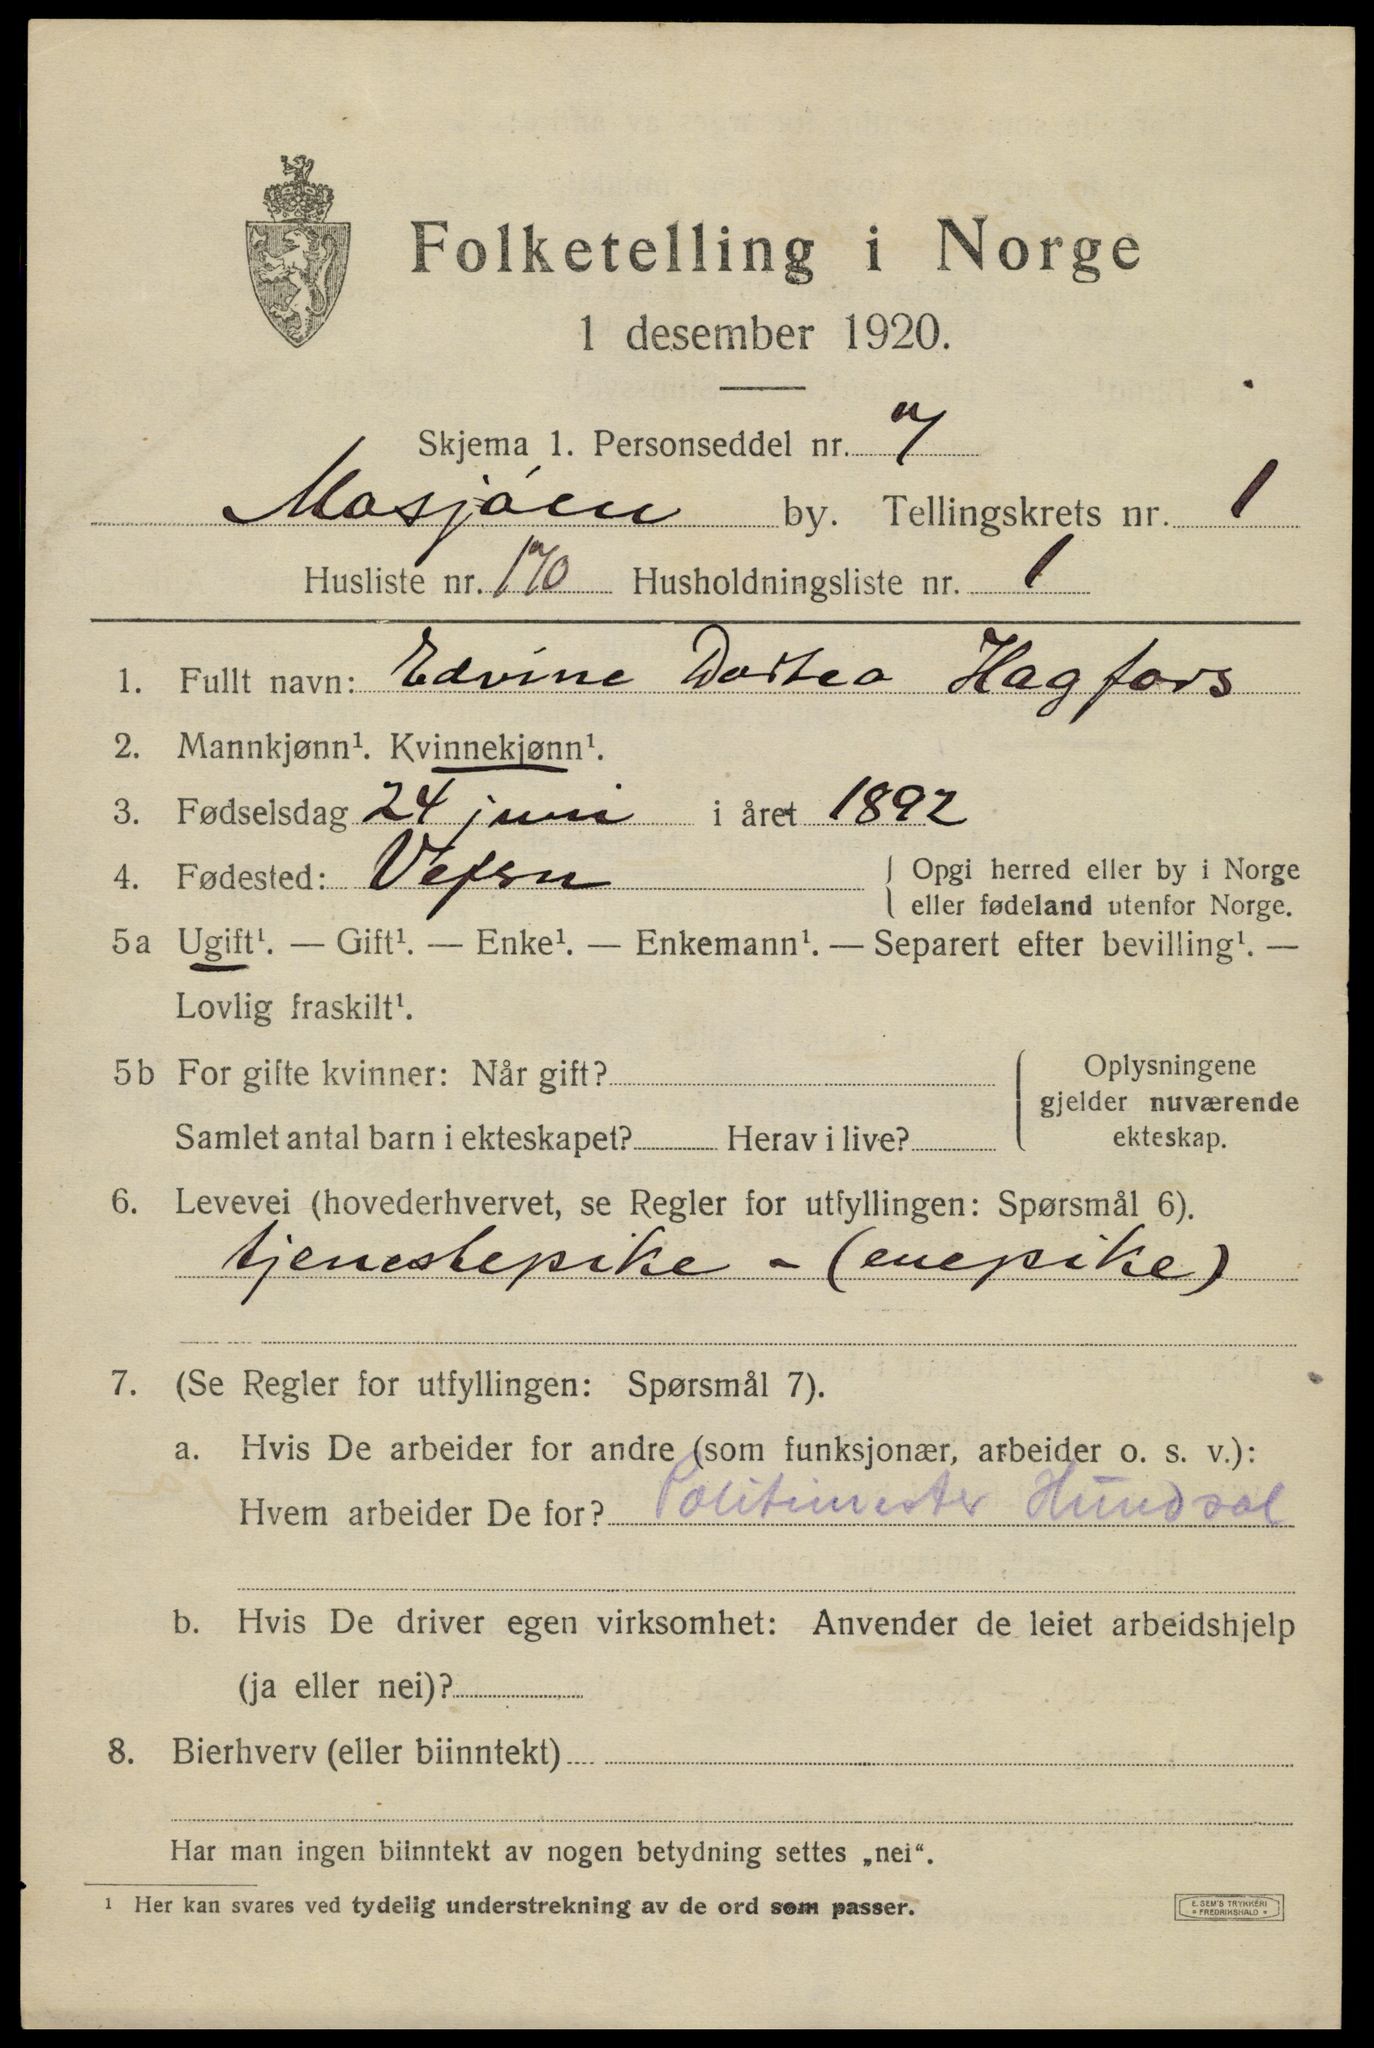 Folketelling i Norge
1 desember 1920.
Skjema 1. Personseddel nr. 7
Mosjøen by. Tellingskrets nr. 1
Husliste nr. 170 Husholdningsliste nr. 1
1. Fullt navn: Edvine Dortea Hagfors
2. Mannkjønn¹. Kvinnekjønn¹.
3. Fødselsdag 24 juni i året 1892
4. Fødested: Vefsn { Opgi herred eller by i Norge
eller fødeland utenfor Norge.
5a Ugift¹. — Gift¹. — Enke¹. — Enkemann¹. — Separert efter bevilling¹. —
Lovlig fraskilt¹.
5b For gifte kvinner: Når gift?
Samlet antal barn i ekteskapet? Herav i live?
{ Oplysningene
gjelder nuværende
ekteskap.
6. Levevei (hovederhvervet, se Regler for utfyllingen: Spørsmål 6).
tjenestepike - (enepike)
7. (Se Regler for utfyllingen: Spørsmål 7).
a. Hvis De arbeider for andre (som funksjonær, arbeider o. s. v.):
Hvem arbeider De for? Politimester Hundsal
b. Hvis De driver egen virksomhet: Anvender de leiet arbeidshjelp
(ja eller nei)?
8. Bierhverv (eller biinntekt)
Har man ingen biinntekt av nogen betydning settes „nei“.
¹ Her kan svares ved tydelig understrekning av de ord som passer.
E. SEM'S TRYKKERI
* FREDRIKSHALD *